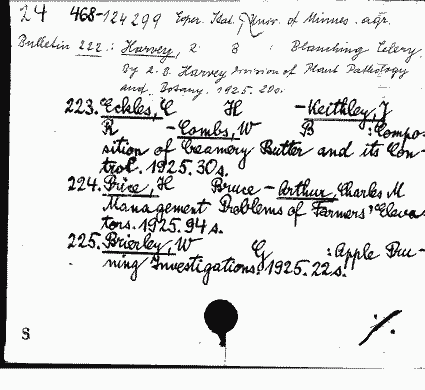 24 468-124299 Exper. Stat. (Univ. of Minnes. agr.
Bulletin 222.: Harvey, R B : Blanching Celery.
By R. B. Harvey Division of Plant Pathology
and Botany. 1925. 20s.
223. Eckles, C H - Keithley, J
R - Combs, W B : Compo-
sition of Creamery Butter and its Con-
trol. 1925. 30s.
224. Price, H Bruce - Arthur, Charles M
Management Problems of Farmers' Eleva-
tors. 1925. 94 s.
225. Brierley, W G : Apple Pru-
ning Investigations. 1925. 22s.
S